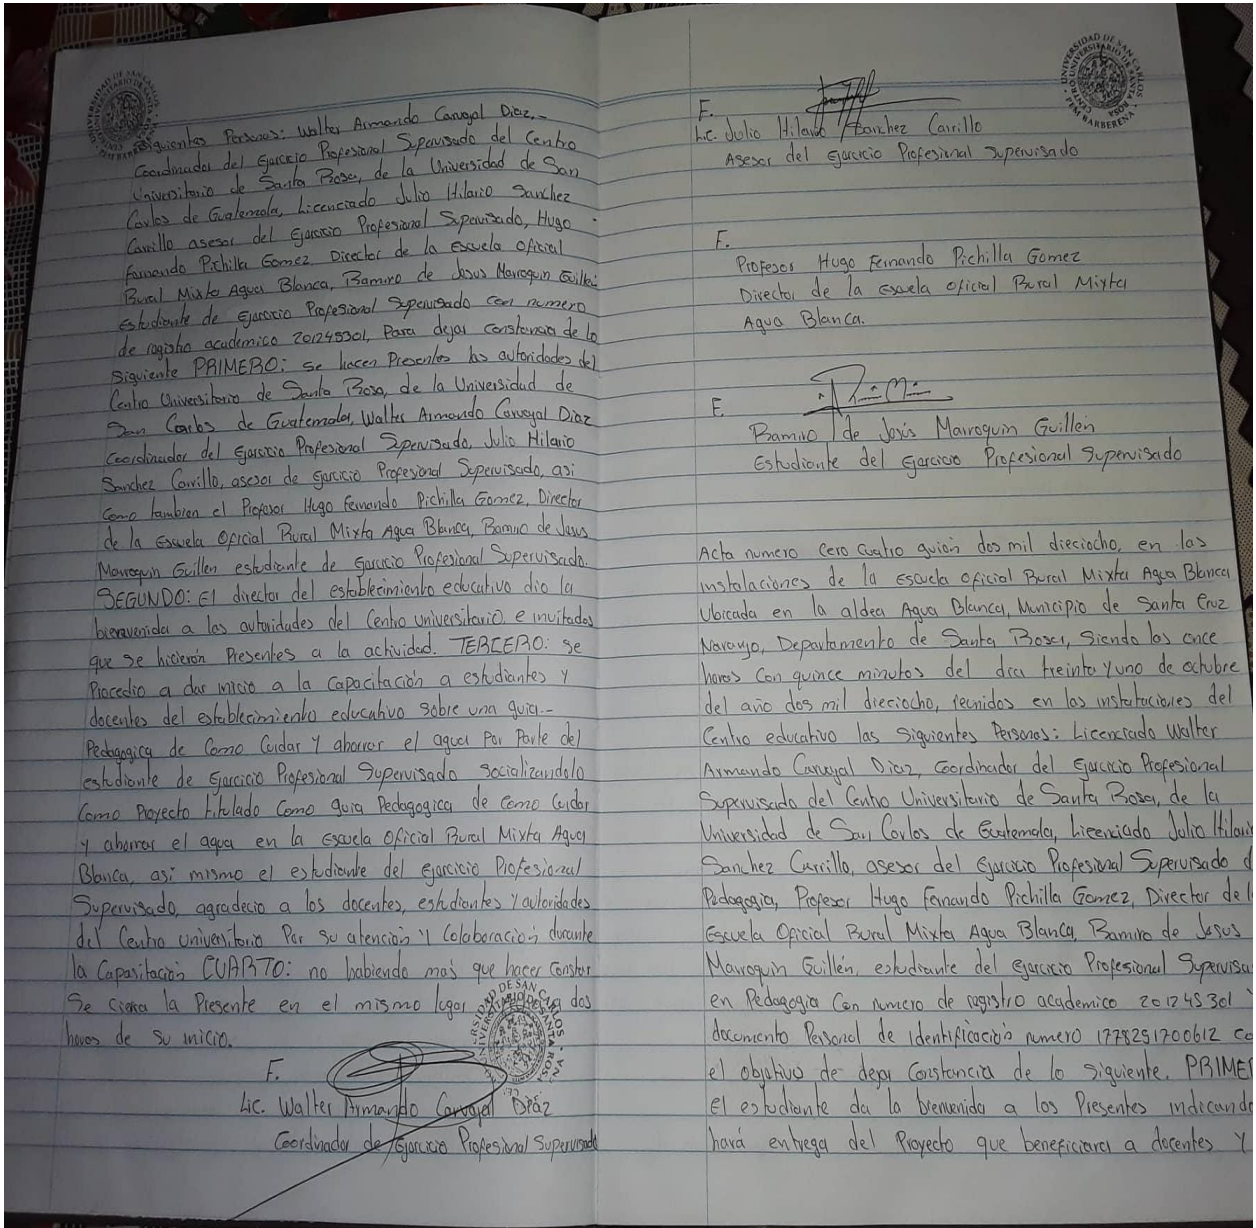 Siguientes Personas: Walter Armando Carvajal Diaz,-
Coordinador del Ejercicio Profesional Supervisado del Centro
Universitario de Santa Rosa, de la Universidad de San
Carlos de Guatemala, Licenciado Julio Hilario Sanchez
Carrillo asesor del Ejercicio Profesional Supervisado, Hugo
Fernando Pichilla Gomez, Director de la Escuela oficial
Rural Mixta Agua Blanca, Ramiro de Jesus Marroquin Guillen
Estudiante de Ejercicio Profesional Supervisado con numero
de registro academico 201245301, Para dejar constancia de lo
Siguiente PRIMERO: se hacen Presentes las autoridades del
Centro Universitario de Santa Rosa, de la Universidad de
San Carlos de Guatemala, Walter Armando Carvajal Diaz
Coordinador del Ejercicio Profesional Supervisado, Julio Hilario
Sanchez Carrillo, asesor de Ejercicio Profesional Supervisado, asi
como tambien el Profesor Hugo Fernando Pichilla Gomez, Director
de la Escuela Oficial Rural Mixta Agua Blanca, Ramiro de Jesus
Marroquin Guillen estudiante de Ejercicio Profesional Supervisado.
SEGUNDO: El director del establecimiento educativo dio la
bienvenida a las autoridades del Centro universitario e invitados
que se hicieron Presentes a la actividad. TERCERO: se
Procedio a dar inicio a la Capacitación a estudiantes y
docentes del establecimiento educativo sobre una guia.-
Pedagogica de Como Cuidar y ahorrar el agua Por Parte del
estudiante de Ejercicio Profesional Supervisado socializandolo
Como Proyecto titulado Como guia Pedagogica de como Cuidar
y ahorrar el agua en la Escuela Oficial Rural Mixta Agua
Blanca, asi mismo el estudiante del ejercicio Profesional
Supervisado, agradecio a los docentes, estudiantes y autoridades
del Centro Universitario Por su atención y Colaboración durante
la Capasitación CUARTO: no habiendo mas que hacer Constar
Se cierra la Presente en el mismo lugar dos
horas de su inicio.
F.
Lic. Walter Armando Carvajal Diaz
Coordinador de Ejercicio Profesional Supervisado
F.
Lic. Julio Hilario Sanchez Carrillo
Asesor del Ejercicio Profesional Supervisado
F.
Profesor Hugo Fernando Pichilla Gomez
Director de la Escuela oficial Rural Mixta
Agua Blanca.
F.
Ramiro de Jesús Marroquin Guillén
Estudiante del Ejercicio Profesional Supervisado
Acta numero cero cuatro guión dos mil dieciocho, en las
instalaciones de la Escuela Oficial Rural Mixta Agua Blanca
Ubicada en la aldea Agua Blanca, Municipio de Santa Cruz
Naranjo, Departamento de Santa Rosa, Siendo las once
horas Con quince minutos del dia treinta y uno de octubre
del año dos mil dieciocho, reunidos en las instalaciones del
Centro educativo las Siguientes Personas: Licenciado Walter
Armando Carvajal Diaz, Coordinador del Ejercicio Profesional
Supervisado del Centro Universitario de Santa Rosa, de la
Universidad de San Carlos de Guatemala, Licenciado Julio Hilario
Sanchez Carrillo, asesor del Ejercicio Profesional Supervisado d
Pedagogia, Profesor Hugo Fernando Pichilla Gomez, Director de l
Escuela Oficial Rural Mixta Agua Blanca, Ramiro de Jesus
Marroquin Guillén, estudiante del Ejercicio Profesional Supervisa
en Pedagogia Con numero de registro academico 201245301 y
documento Personal de Identificación numero 1778251700612 co
el objetivo de dejar Constancia de lo siguiente. PRIME
el estudiante da la bienvenida a los Presentes indicando
hará entrega del Proyecto que beneficiara a docentes y